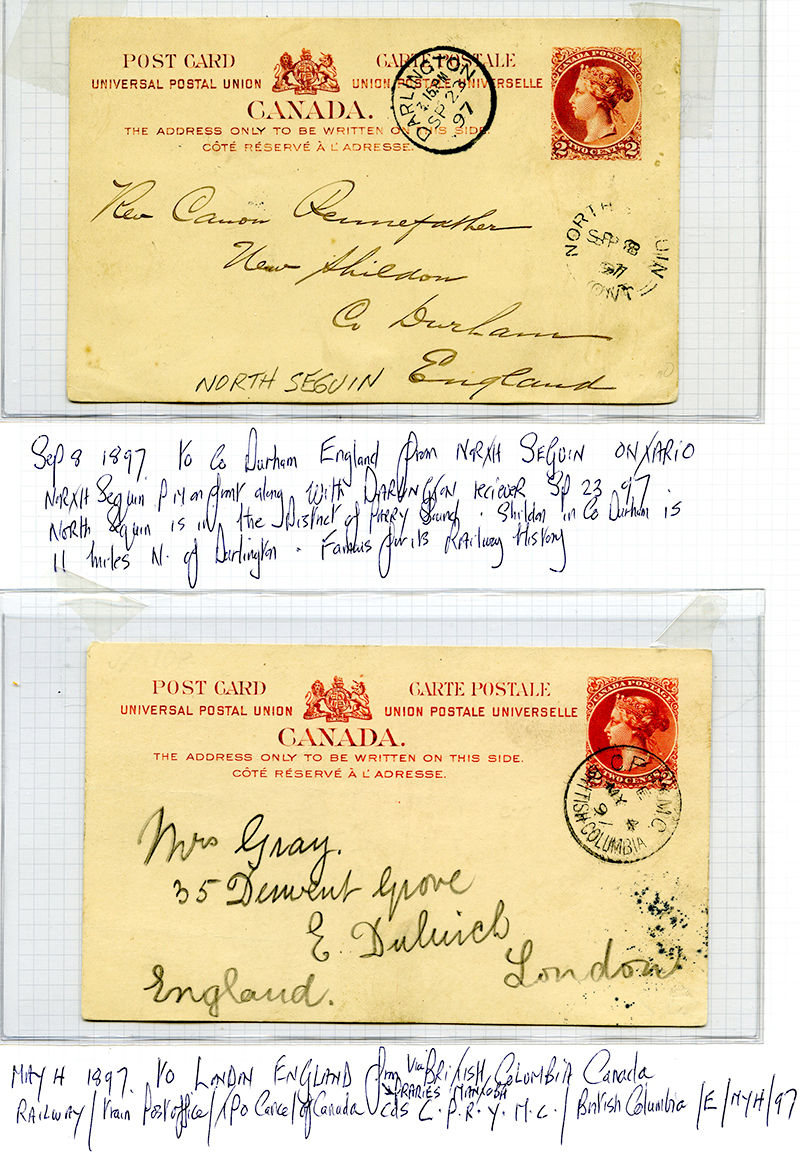 POST CARD CARTE POSTALE
UNIVERSAL POSTAL UNION UNION POSTALE UNIVERSELLE
CANADA.
THE ADDRESS ONLY TO BE WRITTEN ON THIS SIDE.
CÔTÉ RÉSERVÉ À L'ADRESSE.
DARLINGTON
2.15 PM
SP 23
97
CANADA POSTAGE
2 TWO CENTS 2
NORTH UIN
SEP 8
97
ONT
Rev Canon Pennefather
New Shildon
Co Durham
England
NORTH SEGUIN
Sep 8 1897. to Co Durham England from NORTH SEGUIN ONTARIO
NORTH Seguin on front along with DARLINGTON reciever SP 23 97
NORTH Seguin is in the District of PARRY Sound. Shildon in Co Durham is
11 miles N. of Darlington. Famous for its Railway History
POST CARD CARTE POSTALE
UNIVERSAL POSTAL UNION UNION POSTALE UNIVERSELLE
CANADA.
THE ADDRESS ONLY TO BE WRITTEN ON THIS SIDE.
CÔTÉ RÉSERVÉ À L'ADRESSE.
CANADA POSTAGE
TWO CENTS 2
C.P. Y.M.C.
E
MY 4
97
BRITISH COLUMBIA
Mrs Gray.
35 Derwent Grove
E. Dulwich
London
England.
MAY 4 1897. to LONDON ENGLAND from Via BRITISH COLUMBIA Canada
PRARIES MANITOBA
RAILWAY/Train Post office/TPO Cancel of Canada cds C.P.R.Y.M.C./British Columbia/E/MY4/97